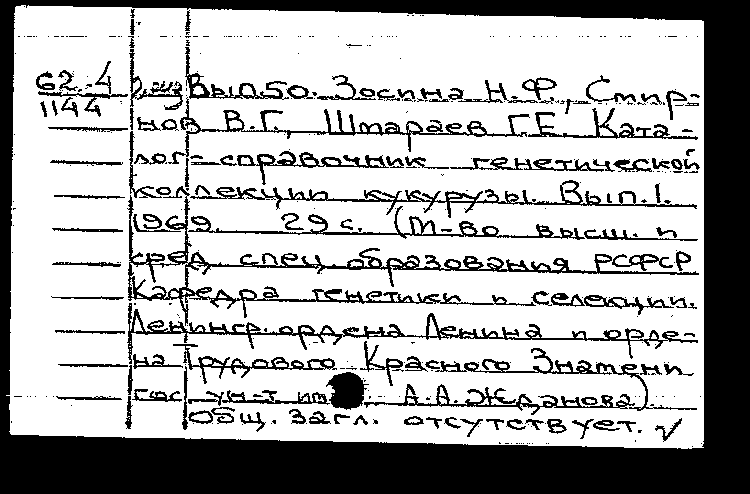 62-4 Вып.50. Зосина Н.Ф., Смир-
1144
нов В.Г., Штараев Г.Е. Ката-
лог-справочник генетической
коллекции кукурузы. Вып.1.
1969. 29 с. (М-во высш. и
сред. спец. образования РСФСР
Кафедра генетики и селекции.
Ленингр. ордена Ленина и орде-
на Трудового Красного Знамени
гос. ун-т им. А.А.Жданова).
Общ. загл. отсутствует. √